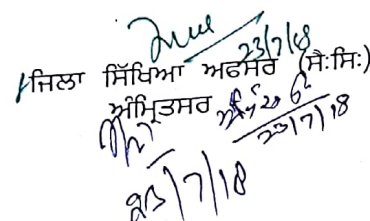 23/7/18
ਜਿਲਾ ਸਿੱਖਿਆ ਅਫਸਰ (ਸੈ:ਸਿ:)
ਅੰਮ੍ਰਿਤਸਰ
23/7/18
23/7/18